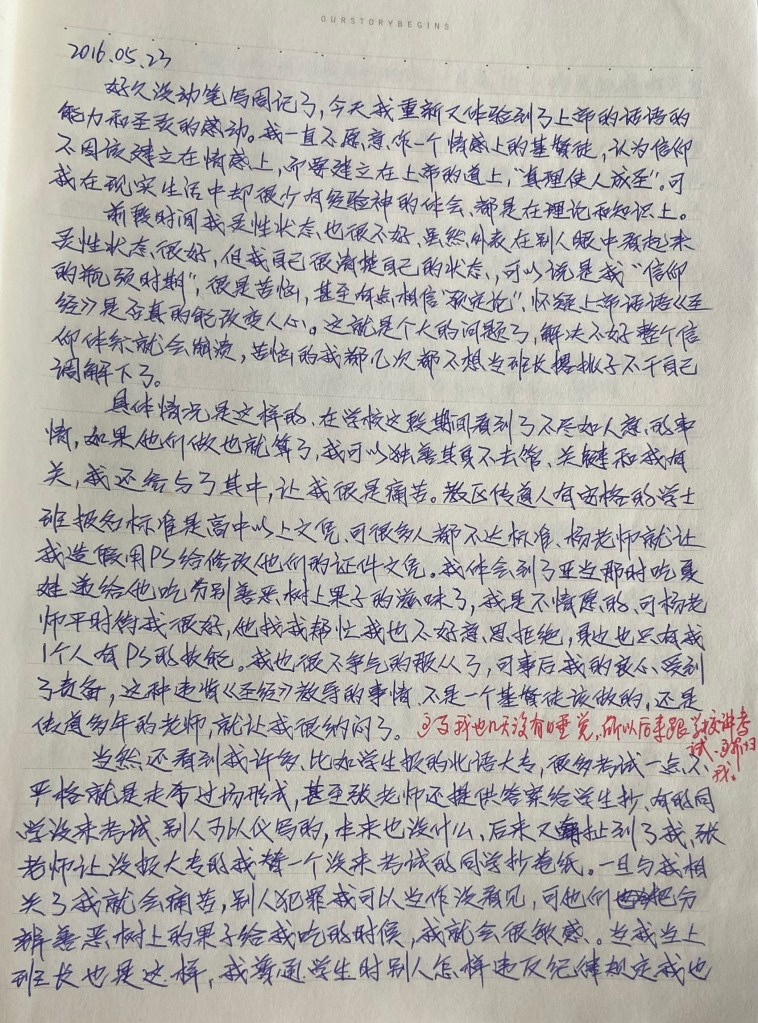 OURSTORYBEGINS
2016.05.23
好久没动笔写周记了,今天我重新又体验到了上帝的话语的
能力和圣灵的感动。我一直不愿意作一个情感上的基督徒,认为信仰
不因该建立在情感上,而要建立在上帝的道上,“真理使人成圣”。可
我在现实生活中却很少有经验神的体会、都是在理论和知识上。
前段时间我灵性状态也很不好、虽然外表在别人眼中看起来
灵性状态很好,但我自己很清楚自己的状态,可以说是我“信仰
的瓶颈时期”,很是苦恼,甚至有点相信“预定论”、怀疑上帝话语《圣
经》是否真的能改变人心。这就是个大的问题了,解决不好整个信
仰体系就会崩溃,苦恼的我都几次都不想当班长撂挑子不干自己
调解下了。
具体情况是这样的、在学校这段期间看到了不尽如人意的事
情,如果他们做也就算了,我可以独善其身不去管、关键和我有
关,我还给与了其中,让我很是痛苦。教区传道人有资格的学士
班报名标准是高中以上文凭、可很多人都不达标准、杨老师就让
我造假用PS给修改他们的证件文凭。我体会到了亚当那时吃夏
娃递给他吃分别善恶树上果子的滋味了,我是不情愿的、可杨老
师平时待我很好,他找我帮忙我也不好意思拒绝,身边也只有我
1个人有PS的技能。我也很不争气的服从了,可事后我的良心受到
了责备,这种违背《圣经》教导的事情、不是一个基督徒该做的,还是
传道多年的老师,就让我很纳闷了。
为了我也几天没有睡觉,所以后来跟学校讲考
试、
我。
当然还看到我许多、比如学生报的北语大专,很多考试一点不
严格就是走个过场形式,甚至张老师还提供答案给学生抄、有的同
学没来考试、别人予以仪写的,本来也没什么、后来又扯到了我、张
老师让没报大专的我替一个没来考试的同学抄卷纸。一旦与我相
关了我就会痛苦,别人犯罪我可以当作没看见,可他们把分
辨善恶树上的果子给我吃的时候,我就会很敏感。当我当上
班长也是这样,我普通学生时别人怎样违反纪律规定我也